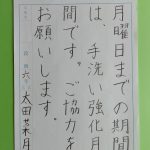 月曜日までの期間
は、手洗い強化月
間です。ご協力を
お願いします。
六年 太田菜月